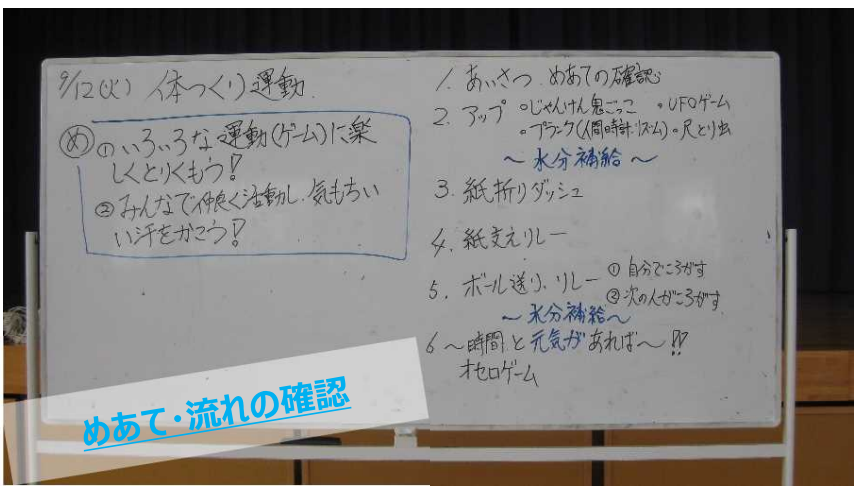 9/12(火) 体つくり運動
め ①いろいろな運動(ゲーム)に楽
しくとりくもう!
②みんなで仲良く活動し、気もちい
い汗をかこう!
1. あいさつ、めあての確認
2. アップ ◦じゃんけん鬼ごっこ ◦UFOゲーム
◦プランク(人間時計、リズム) ◦尺とり虫
～水分補給～
3. 紙折りダッシュ
4. 紙支えリレー
5. ボール送り、リレー ①自分でころがす
②次の人がころがす
～水分補給～
6 ～時間と元気があれば～!!
オセロゲーム
めあて・流れの確認